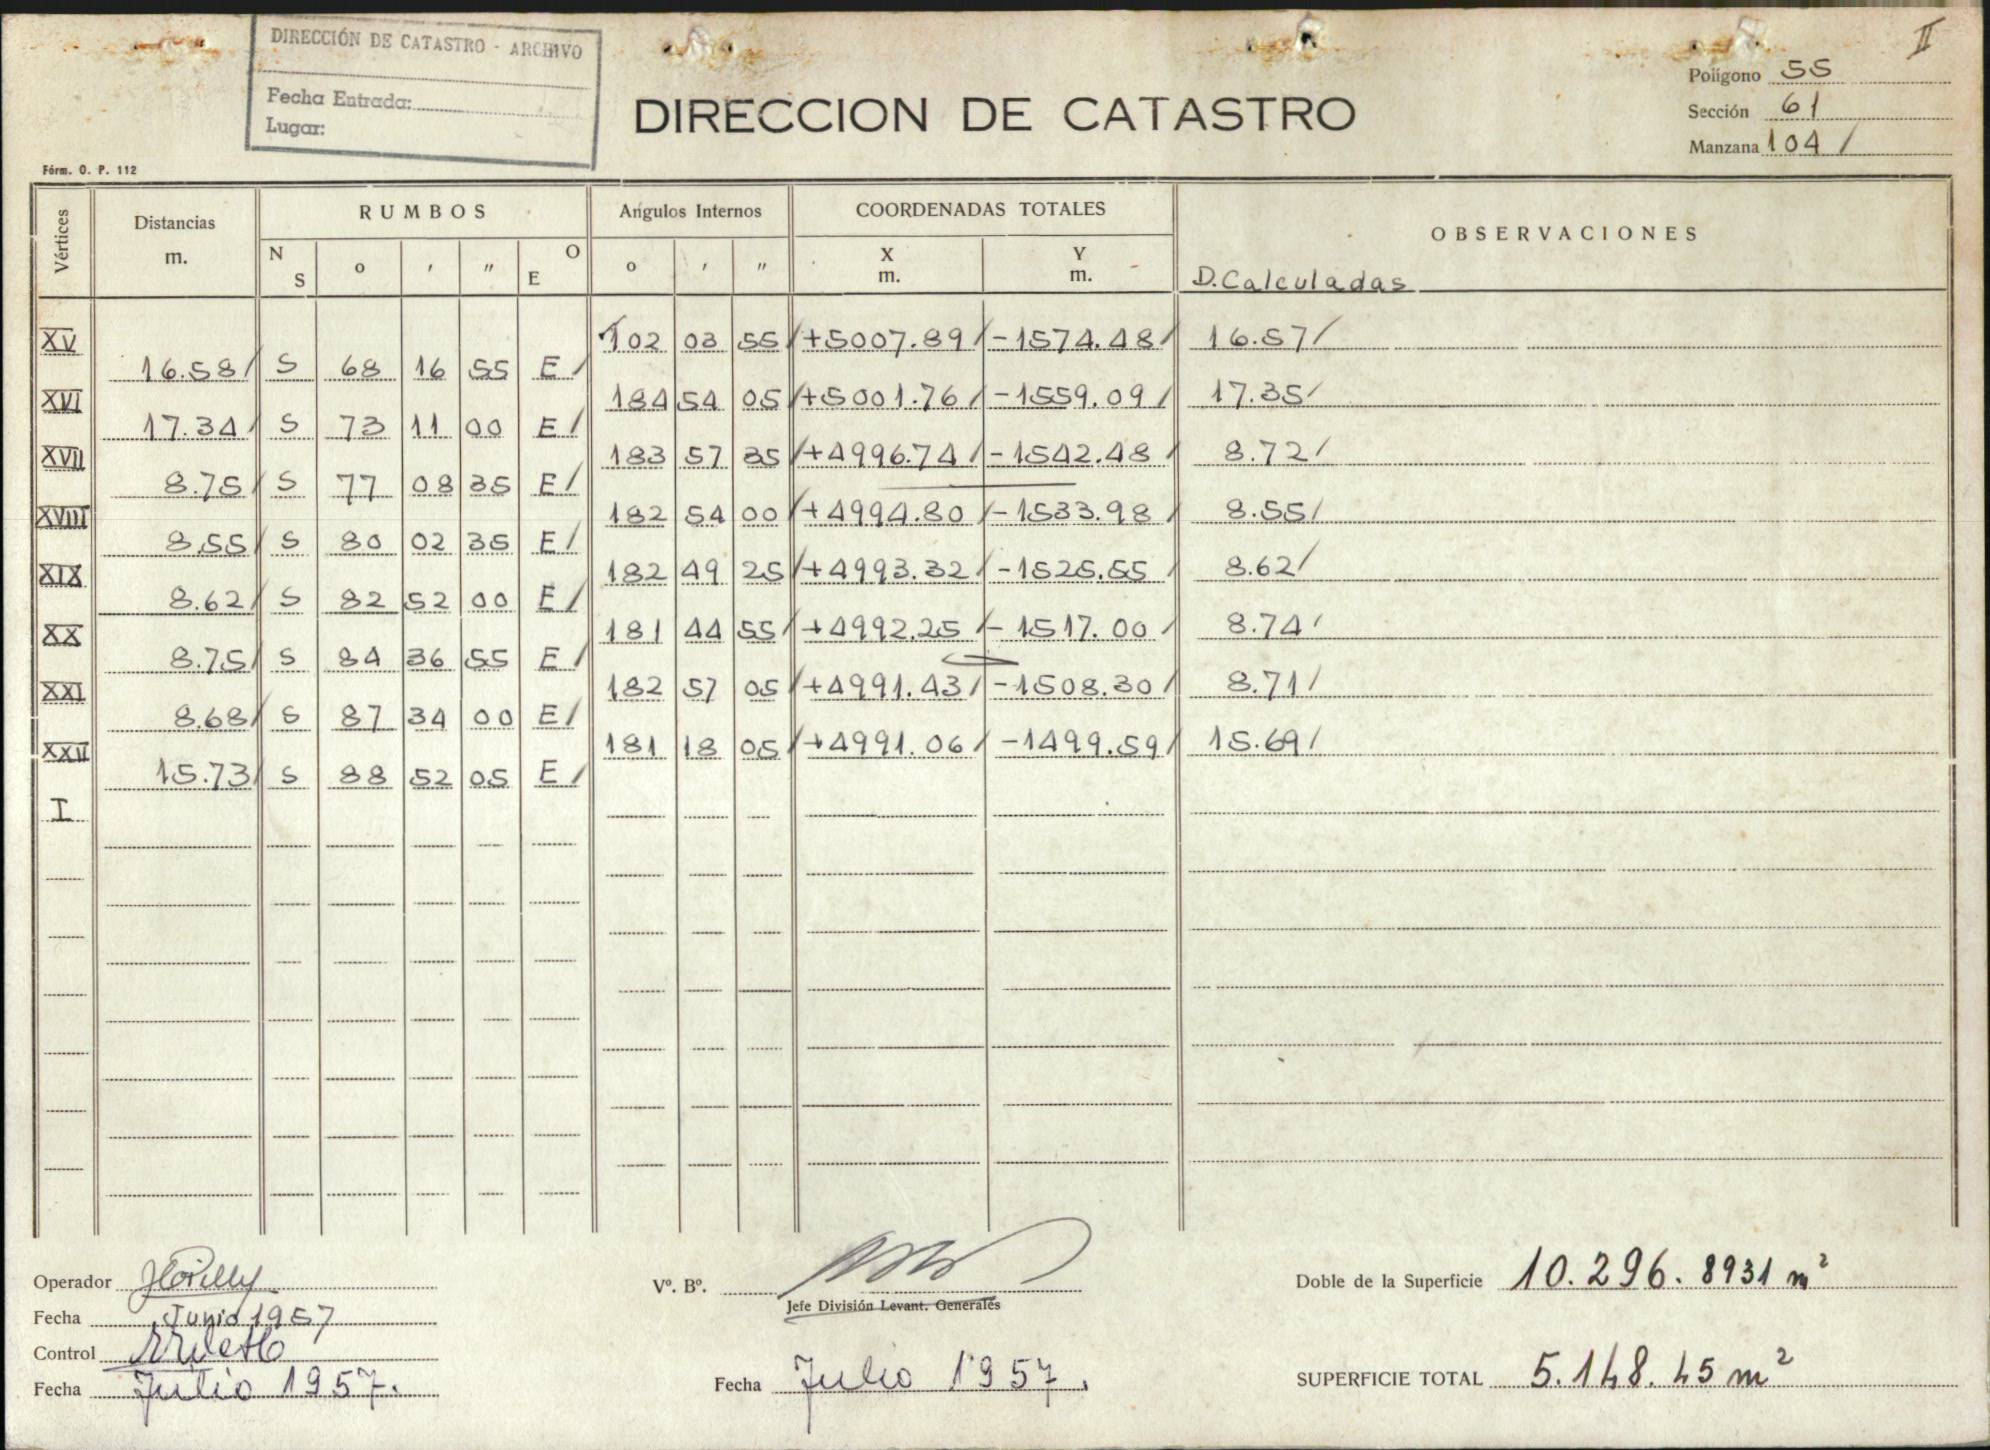 II
DIRECCIÓN DE CATASTRO - ARCHIVO
Fecha Entrada:
Lugar:
DIRECCION DE CATASTRO
Polígono 55
Sección 61
Manzana 104 /
Fórm. O. P. 112
Vértices Distancias m. RUMBOS Angulos Internos COORDENADAS TOTALES OBSERVACIONES
N S o ' " O E o ' " X m. Y m. D. Calculadas
XV 102 03 55 / +5007.89 / -1574.48 / 16.57 /
16.58 / S 68 16 55 E /
XVI 184 54 05 / +5001.76 / -1559.09 / 17.35 /
17.34 / S 73 11 00 E /
XVII 183 57 35 / +4996.74 / -1542.48 / 8.72 /
8.75 / S 77 08 35 E /
XVIII 182 54 00 / +4994.80 / -1533.98 / 8.55 /
8.55 / S 80 02 35 E /
XIX 182 49 25 / +4993.32 / -1525.55 / 8.62 /
8.62 / S 82 52 00 E /
XX 181 44 55 / +4992.25 / -1517.00 / 8.74 /
8.75 / S 84 36 55 E /
XXI 182 57 05 / +4991.43 / -1508.30 / 8.71 /
8.68 / S 87 34 00 E /
XXII 181 18 05 / +4991.06 / -1499.59 / 15.69 /
15.73 / S 88 52 05 E /
I
Operador
Fecha Junio 1957
Control
Fecha Julio 1957.
Vº. Bº.
Jefe División Levant. Generales
Fecha Julio 1957.
Doble de la Superficie 10.296.8931 m²
SUPERFICIE TOTAL 5.148.45 m²